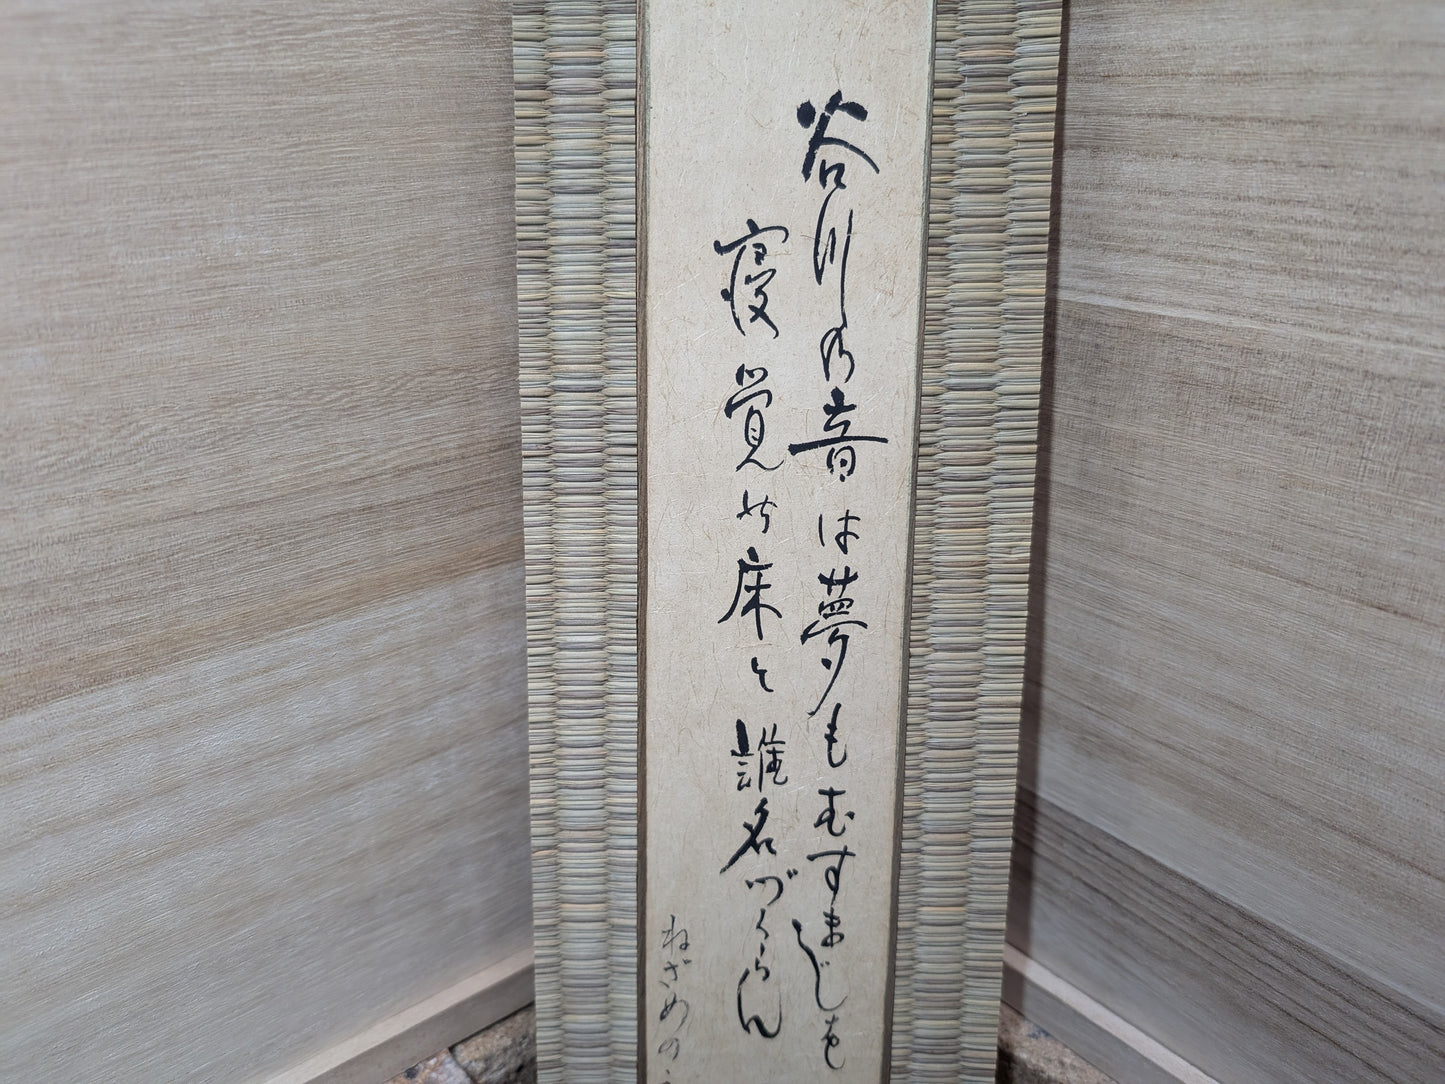 谷川乃音は夢もむすまじを
寝覚の床と誰名づくらん
ねざめの